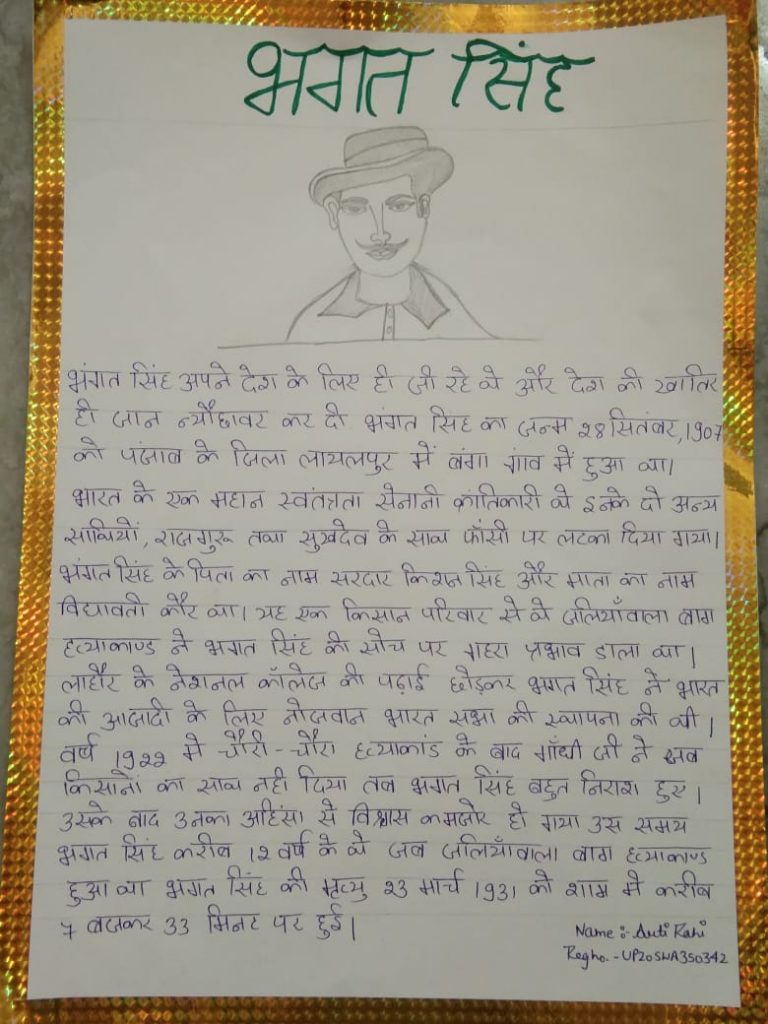 भगत सिंह
भंगत सिंह अपने देश के लिए ही जी रहे थे और देश की खातिर
ही जान न्यौछावर कर दी. भंगत सिंह का जन्म 28 सितंबर, 1907
को पंजाब के जिला लायलपुर में बंगा गांव में हुआ था।
भारत के एक महान स्वतंत्रता सेनानी क्रांतिकारी थे इनके दो अन्य
साथियों, राजगुरू तथा सुखदेव के साथ फाँसी पर लटका दिया गया।
भंगत सिंह के पिता का नाम सरदार किशन सिंह और माता का नाम
विद्यावती कौर था। यह एक किसान परिवार से थे जलियाँवाला बाग
हत्याकाण्ड ने भगत सिंह की सोच पर गहरा प्रभाव डाला था।
लाहौर के नेशनल कॉलेज की पढ़ाई छोड़कर भगत सिंह ने भारत
की आजादी के लिए नौजवान भारत सभा की स्थापना की थी।
वर्ष 1922 में चौरी-चौरा हत्याकांड के बाद गाँधी जी ने जब
किसानों का साथ नही दिया तब भगत सिंह बहुत निराश हुए।
उसके बाद उनका अहिंसा से विश्वास कमजोर हो गया उस समय
भगत सिंह करीब 12 वर्ष के थे जब जलियाँवाला बाग हत्याकाण्ड
हुआ था भगत सिंह की मृत्यु 23 मार्च 1931 को शाम में करीब
7 बजकर 33 मिनट पर हुई।
Name :-
Regho. - UP20SWA350342